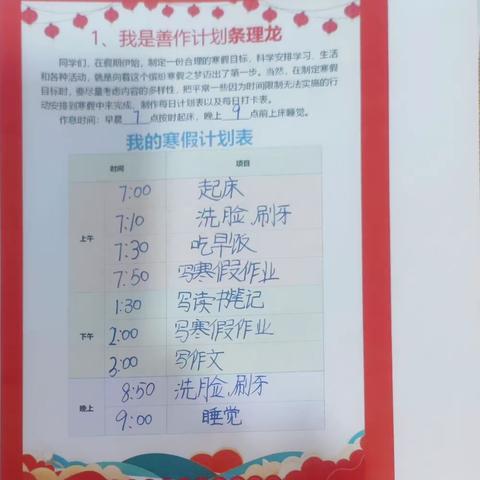 1、我是善作计划条理龙
同学们,在假期伊始,制定一份合理的寒假目标,科学安排学习、生活
和各种活动,就是向着这个缤纷寒假之梦迈出了第一步。当然,在制定寒假
目标时,要尽量考虑内容的多样性,把平常一些因为时间限制无法实施的行
动安排到寒假中来完成,制作每日计划表以及每日打卡表。
作息时间:早晨 7 点按时起床,晚上 9 点前上床睡觉。
我的寒假计划表
时间 项目
上午
7:00 起床
7:10 洗脸、刷牙
7:30 吃早饭
7:50 写寒假作业
下午
1:30 写读书笔记
2:00 写寒假作业
3:00 写作文
晚上
8:50 洗脸、刷牙
9:00 睡觉